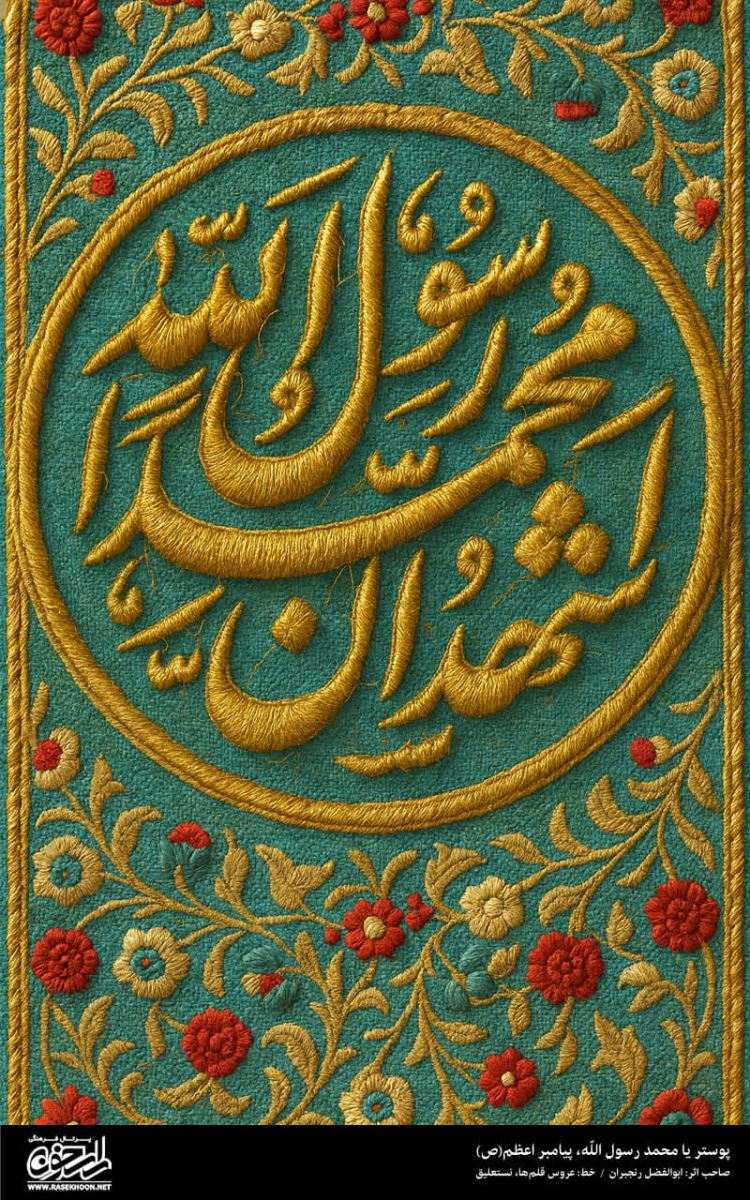 اشهد ان
محمدا
رسول الله
پوستر یا محمد رسول اللّه، پیامبر اعظم(ص)
صاحب اثر: ابوالفضل رنجبران / خط: عروس قلم‌ها، نستعلیق
پرتال فرهنگی
راسخون
WWW.RASEKHOON.NET